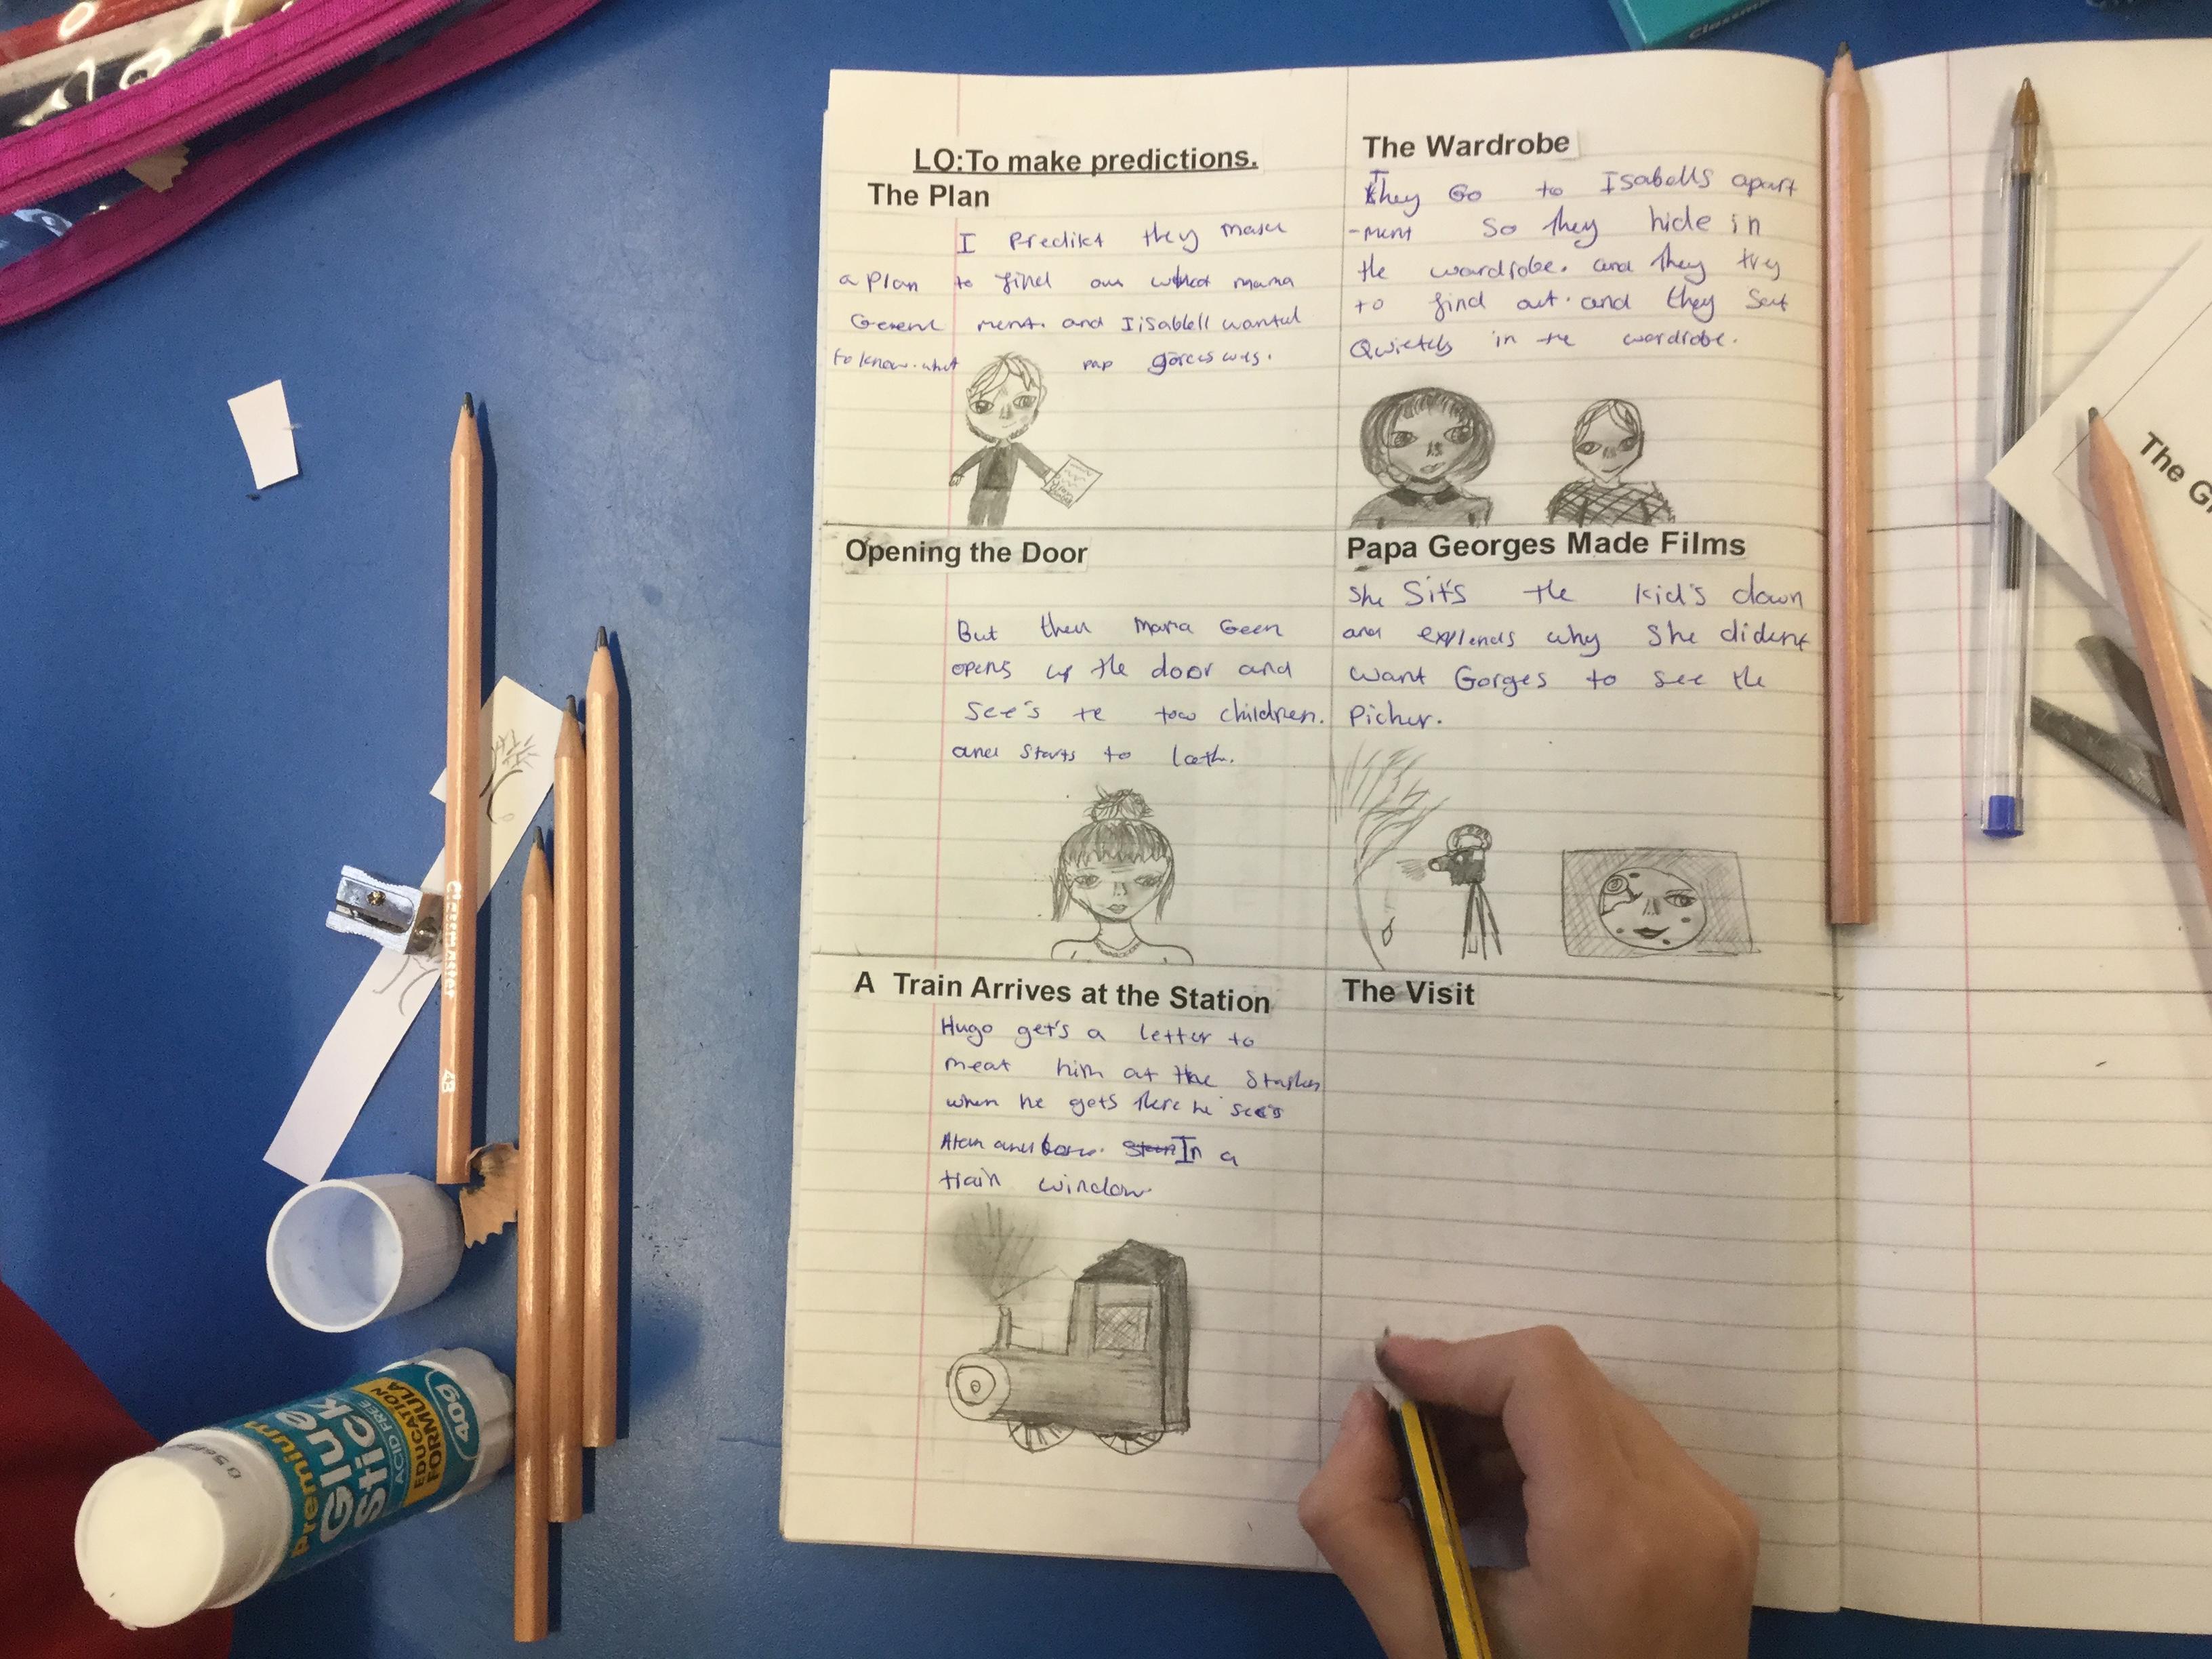 LO:To make predictions.
The Plan
I Predikt they make
a Plan to find out what mama
ment. and Iisablell wanted
to know. what pap gorces was.
The Wardrobe
They Go to Isabells apart
-ment So they hide in
the wardrobe. and they try
to find out. and they Sat
Qwietly in the wardrobe.
Opening the Door
But then Mama Geen
opens up the door and
See's te tow children.
and starts to lath.
Papa Georges Made Films
She Sit's the kid's down
and explends why She dident
want Gorges to see the
Picher.
A Train Arrives at the Station
Hugo get's a letter to
meat him at the
when he gets there he sees
In a
train window
The Visit
The G
Premium
Glue
Stick
ACID FREE
EDUCATION
FORMULA
40g
Classmaster
4B